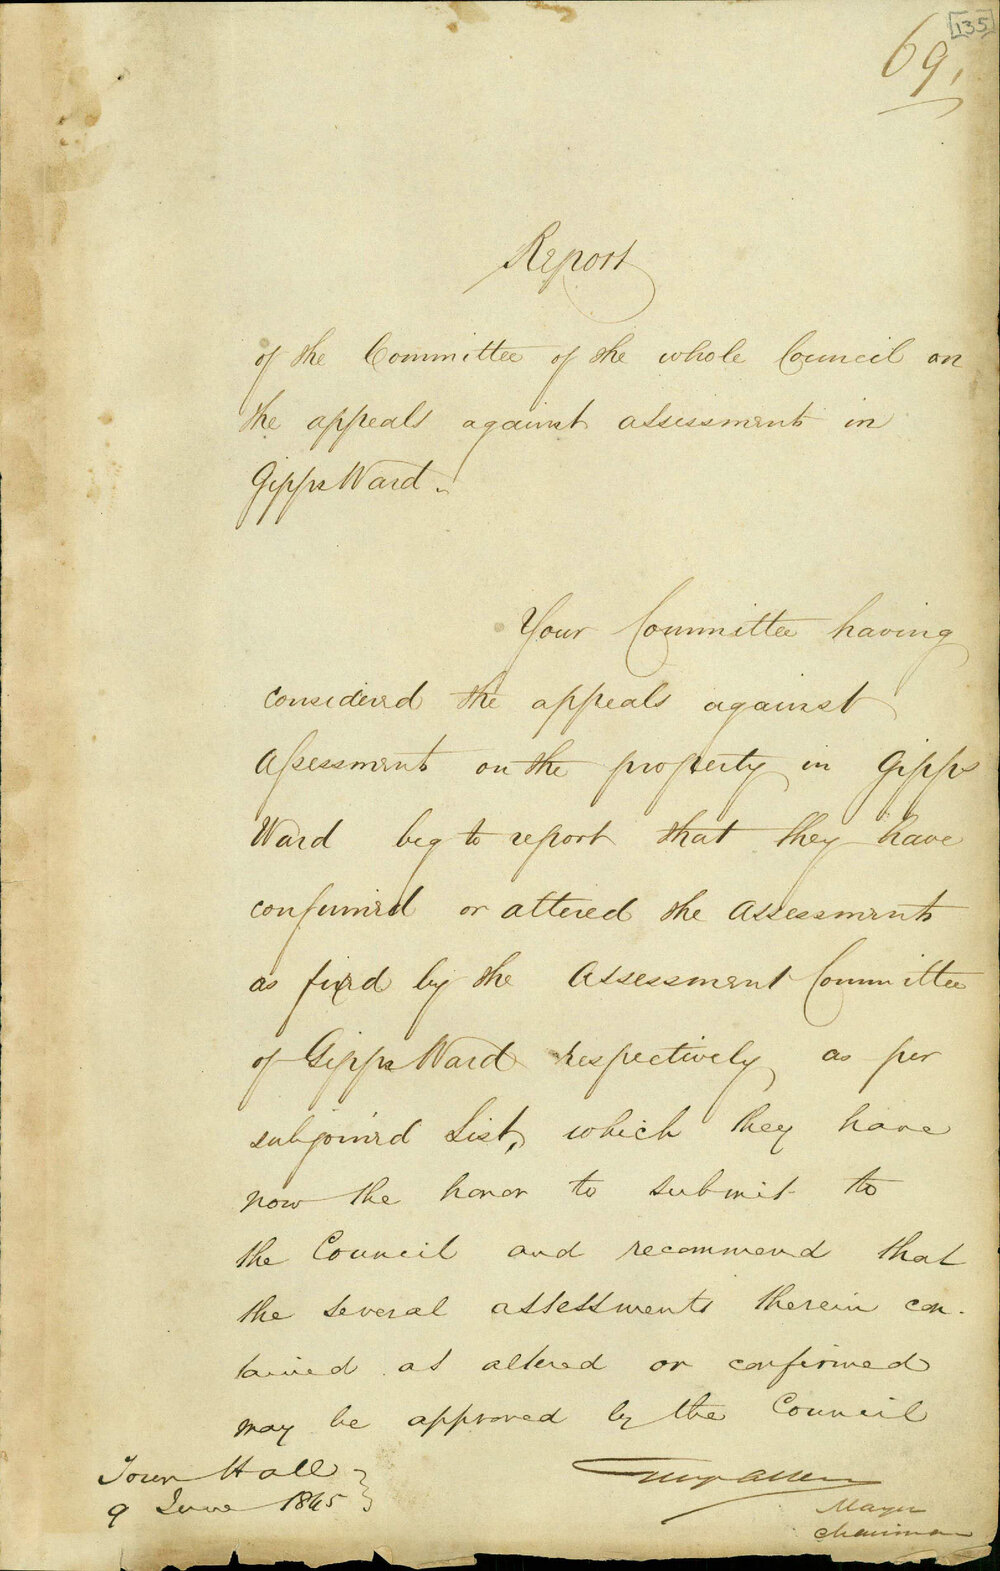 135
69,
Report
of the Committee of the whole Council on
the appeals against assessments in
Gipps Ward.
Your Committee having
considered the appeals against
Assessments on the property in Gipps
Ward beg to report that they have
confirmed or altered the Assessments
as fixed by the Assessment Committee
of Gipps Ward respectively as per
subjoined List, which they have
now the honor to submit to
the Council and recommend that
the several assessments therein con-
tained as altered or confirmed
may be approved by the Council
Town Hall
9 June 1845
Allen
Mayor
Chairman